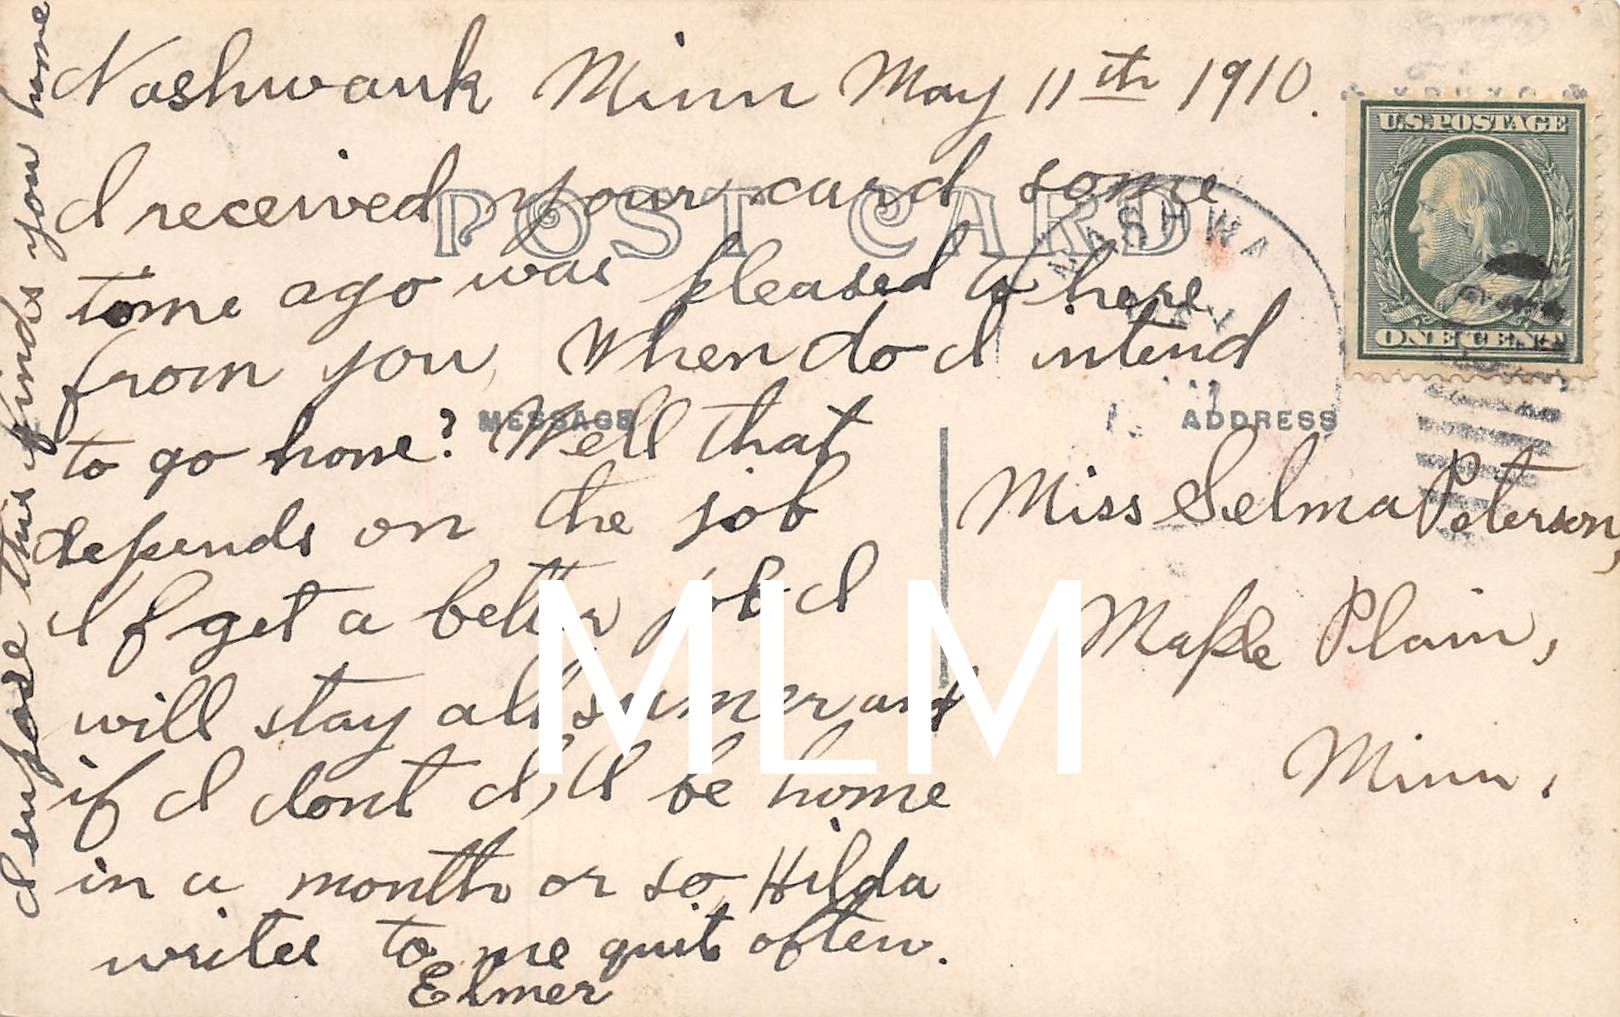 Nashwauk Minn May 11th 1910.
I received your card some
tome ago was pleased to here
from you, When do I intend
to go home? Well that
depends on the job
If get a better job I
will stay all sumer and
if I dont I,ll be home
in a month or so, Hilda
writes to me quit often.
Elmer
I supose this finds you home
POST CARD
MESSAGE
ADDRESS
Miss Selma Peterson,
Maple Plain,
Minn.
NASHWA
U.S. POSTAGE
ONE CENT
MLM